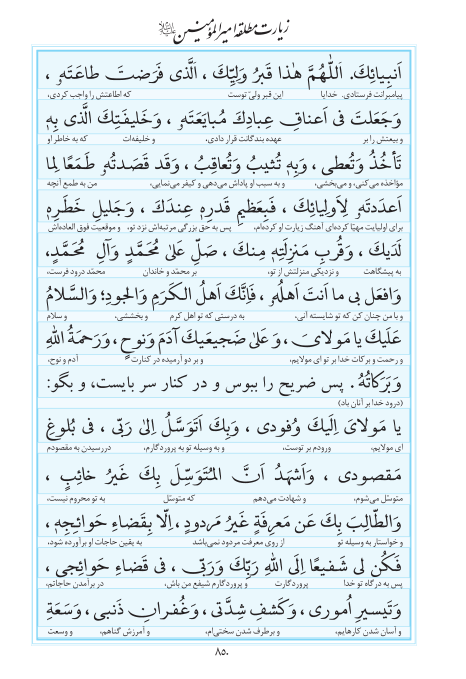 زیارت مطلقه امیرالمؤمنین علیه السلام
اَنبِیائِکَ. اَللّٰهُمَّ هٰذا قَبرُ وَلِیِّکَ ، اَلَّذی فَرَضتَ طاعَتَهٗ ،
پیامبرانت فرستادی. خدایا این قبر ولیّ توست که اطاعتش را واجب کردی،
وَ جَعَلتَ فی اَعناقِ عِبادِکَ مُبایَعَتَهٗ ، وَ خَلیفَتِکَ الَّذی بِهٖ
و بیعتش را بر عهده بندگانت قرار دادی، و خلیفه‌ات که به خاطر او
تَأخُذُ وَ تُعطی ، وَ بِهٖ تُثیبُ وَ تُعاقِبُ ، وَ قَد قَصَدتُهٗ طَمَعًا لِما
مؤاخذه می‌کنی، و می‌بخشی، و به سبب او پاداش می‌دهی و کیفر می‌نمایی، من به طمع آنچه
اَعدَدتَهٗ لِاَولِیائِکَ ، فَبِعَظیمِ قَدرِهٖ عِندَکَ ، وَ جَلیلِ خَطَرِهٖ
برای اولیایت مهیّا کرده‌ای آهنگ زیارت او کرده‌ام، پس به حق بزرگی مرتبه‌اش نزد تو، و موقعیت فوق العاده‌اش
لَدَیکَ ، وَ قُربِ مَنزِلَتِهٖ مِنکَ ، صَلِّ عَلیٰ مُحَمَّدٍ وَ آلِ مُحَمَّدٍ،
به پیشگاهت و نزدیکی منزلتش از تو، بر محمّد و خاندان محمّد درود فرست،
وَ افعَل بی ما اَنتَ اَهلُهٗ ، فَاِنَّکَ اَهلُ الکَرَمِ وَ الجودِ؛ وَ السَّلامُ
و با من چنان کن که تو شایسته آنی، به درستی که تو اهل کرم و بخششی، و سلام
عَلَیکَ یا مَولایَ ، وَ عَلیٰ ضَجیعَیکَ آدَمَ وَ نوحٍ ، وَ رَحمَةُ اللّٰهِ
و رحمت و برکات خدا بر تو ای مولایم، و بر دو آرمیده در کنارت آدم و نوح،
وَ بَرَکاتُهٗ . پس ضریح را ببوس و در کنار سر بایست، و بگو:
(درود خدا بر آنان باد)
یا مَولایَ اِلَیکَ وُفودی ، وَ بِکَ اَتَوَسَّلُ اِلیٰ رَبّی ، فی بُلوغِ
ای مولایم، ورودم بر توست، و به وسیله تو به پروردگارم، در رسیدن به مقصودم
مَقصودی ، وَ اَشهَدُ اَنَّ المُتَوَسِّلَ بِکَ غَیرُ خائِبٍ ،
متوسّل می‌شوم، و شهادت می‌دهم که متوسّل به تو محروم نیست،
وَ الطّالِبَ بِکَ عَن مَعرِفَةٍ غَیرُ مَردودٍ ، اِلّا بِقَضاءِ حَوائِجِهٖ ،
و خواستار به وسیله تو از روی معرفت مردود نمی‌باشد به یقین حاجات او برآورده شود،
فَکُن لی شَفیعًا اِلَی اللّٰهِ رَبِّکَ وَ رَبّی ، فی قَضاءِ حَوائِجی ،
پس به درگاه تو خدا پروردگارت و پروردگارم شفیع من باش، در برآمدن حاجاتم،
وَ تَیسیرِ اُموری ، وَ کَشفِ شِدَّتی ، وَ غُفرانِ ذَنبی ، وَ سَعَةِ
و آسان شدن کارهایم، و برطرف شدن سختی‌ام، و آمرزش گناهم، و وسعت
۸۵۰